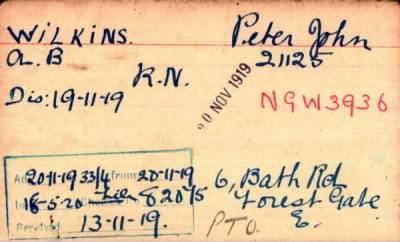 WILKINS. Peter John
A.B 21125
R.N.
20 NOV 1919
Dis: 19-11-19 NGW3936
20-11-19 33/4 from 20-11-19
to 18-5-20 82015
Received 13-11-19.
6, Bath Rd
Forest Gate
E.
PTO.